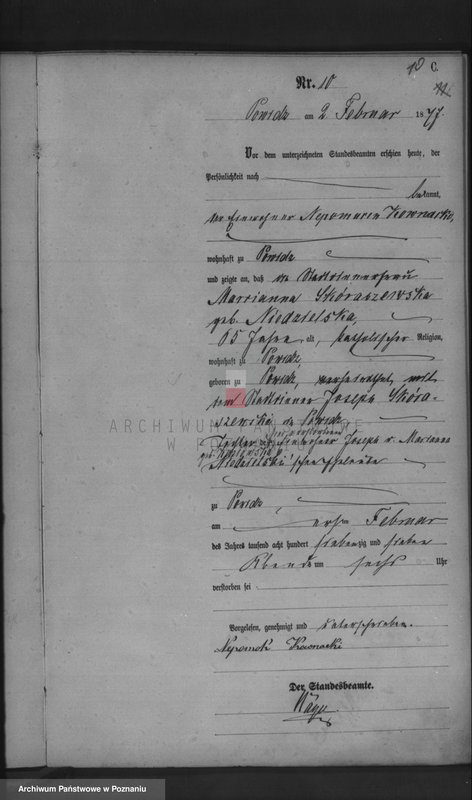 10 C.
Nr. 10
Powidz am 2 Februar 1877.
Vor dem unterzeichneten Standesbeamten erschien heute, der
Persönlichkeit nach
bekannt,
der Einwohner Nepomucen Kownacki,
wohnhaft zu Powidz
und zeigte an, daß die
Marrianna Skóraszewska
geb. Niedzielska,
65 Jahre alt, katholischer Religion,
wohnhaft zu Powidz,
geboren zu Powidz, verheirathet mit
dem Joseph Skóra-
szewski zu Powidz
ARCHIWUM PAŃSTWOWE
W POZNANIU
verstorbenen
Tochter der Joseph u. Marianna
Niedzielski'schen Eheleute
zu Powidz,
am ersten Februar
des Jahres tausend acht hundert siebenzig und sieben
Abends um sechs Uhr
verstorben sei
Vorgelesen, genehmigt und unterschrieben.
Nepomuk Kownacki
Der Standesbeamte.
Archiwum Państwowe w Poznaniu